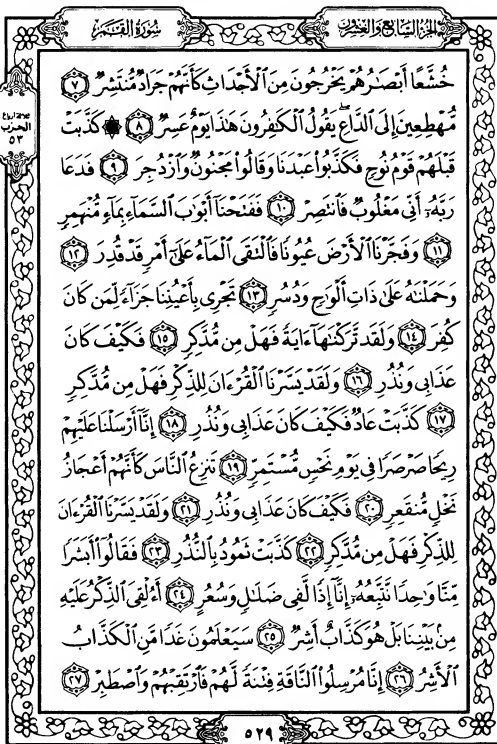 الجزء السابع والعشرون
سورة القمر
خُشَّعًا أَبْصَٰرُهُمْ يَخْرُجُونَ مِنَ ٱلْأَجْدَاثِ كَأَنَّهُمْ جَرَادٌ مُّنتَشِرٌ ٧
مُّهْطِعِينَ إِلَى ٱلدَّاعِ يَقُولُ ٱلْكَٰفِرُونَ هَٰذَا يَوْمٌ عَسِرٌ ٨ ۞ كَذَّبَتْ
ثلاثة أرباع
الحزب
٥٣
قَبْلَهُمْ قَوْمُ نُوحٍ فَكَذَّبُوا۟ عَبْدَنَا وَقَالُوا۟ مَجْنُونٌ وَٱزْدُجِرَ ٩ فَدَعَا
رَبَّهُۥٓ أَنِّى مَغْلُوبٌ فَٱنتَصِرْ ١٠ فَفَتَحْنَآ أَبْوَٰبَ ٱلسَّمَآءِ بِمَآءٍ مُّنْهَمِرٍ
١١ وَفَجَّرْنَا ٱلْأَرْضَ عُيُونًا فَٱلْتَقَى ٱلْمَآءُ عَلَىٰٓ أَمْرٍ قَدْ قُدِرَ ١٢
وَحَمَلْنَٰهُ عَلَىٰ ذَاتِ أَلْوَٰحٍ وَدُسُرٍ ١٣ تَجْرِى بِأَعْيُنِنَا جَزَآءً لِّمَن كَانَ
كُفِرَ ١٤ وَلَقَد تَّرَكْنَٰهَآ ءَايَةً فَهَلْ مِن مُّدَّكِرٍ ١٥ فَكَيْفَ كَانَ
عَذَابِى وَنُذُرِ ١٦ وَلَقَدْ يَسَّرْنَا ٱلْقُرْءَانَ لِلذِّكْرِ فَهَلْ مِن مُّدَّكِرٍ
١٧ كَذَّبَتْ عَادٌ فَكَيْفَ كَانَ عَذَابِى وَنُذُرِ ١٨ إِنَّآ أَرْسَلْنَا عَلَيْهِمْ
رِيحًا صَرْصَرًا فِى يَوْمِ نَحْسٍ مُّسْتَمِرٍّ ١٩ تَنزِعُ ٱلنَّاسَ كَأَنَّهُمْ أَعْجَازُ
نَخْلٍ مُّنقَعِرٍ ٢٠ فَكَيْفَ كَانَ عَذَابِى وَنُذُرِ ٢١ وَلَقَدْ يَسَّرْنَا ٱلْقُرْءَانَ
لِلذِّكْرِ فَهَلْ مِن مُّدَّكِرٍ ٢٢ كَذَّبَتْ ثَمُودُ بِٱلنُّذُرِ ٢٣ فَقَالُوٓا۟ أَبَشَرًا
مِّنَّا وَٰحِدًا نَّتَّبِعُهُۥٓ إِنَّآ إِذًا لَّفِى ضَلَٰلٍ وَسُعُرٍ ٢٤ أَءُلْقِىَ ٱلذِّكْرُ عَلَيْهِ
مِنۢ بَيْنِنَا بَلْ هُوَ كَذَّابٌ أَشِرٌ ٢٥ سَيَعْلَمُونَ غَدًا مَّنِ ٱلْكَذَّابُ
ٱلْأَشِرُ ٢٦ إِنَّا مُرْسِلُوا۟ ٱلنَّاقَةِ فِتْنَةً لَّهُمْ فَٱرْتَقِبْهُمْ وَٱصْطَبِرْ ٢٧
٥٢٩